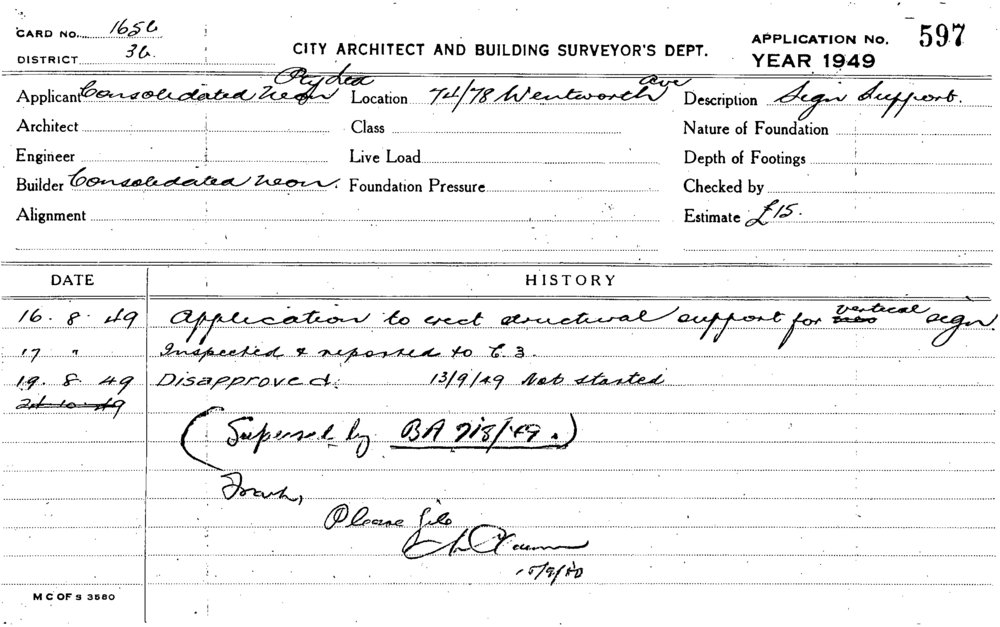 CARD No. 1656
DISTRICT 36.
CITY ARCHITECT AND BUILDING SURVEYOR'S DEPT.
APPLICATION No. 597
YEAR 1949
Applicant Consolidated Neon Pty Ltd Location 74/78 Wentworth Ave Description Sign Support.
Architect Class Nature of Foundation
Engineer Live Load Depth of Footings
Builder Consolidated Neon. Foundation Pressure Checked by
Alignment Estimate £15.
DATE HISTORY
16. 8. 49 Application to erect structural support for vertical sign.
17 " Inspected & reported to C. 3.
19. 8. 49 Disapproved. 13/9/49 Not started
21. 10. 49
(Supersed. by BA 718/49.)
Frank,
Please file
15/9/50
M C OF S 3580